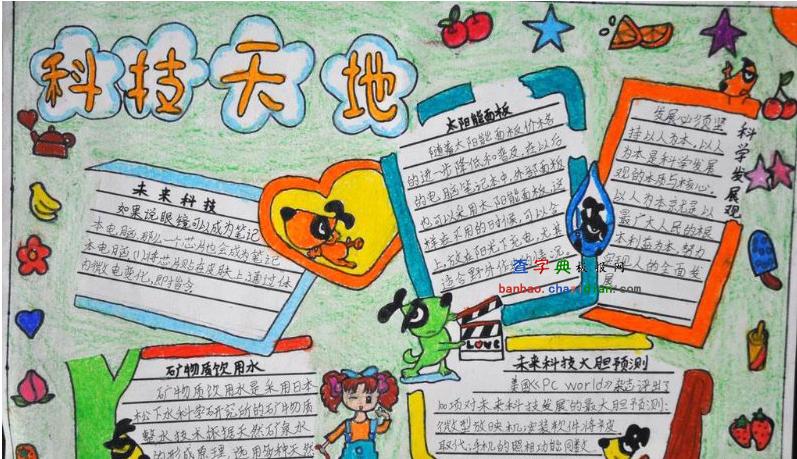 科技天地
未来科技
如果说眼镜可以成为笔记
本电脑,那么一个芯片也会成为笔记
本电脑(将芯片贴在皮肤上,通过体
内微电变化,即指含
太阳能面板
随着太阳能面板价格
的进一步降低和普及,在以后
的电脑笔记本中,外部面板
也可以采用太阳能面板,这
样在不用的时候,可以合
上,放在阳光下充电,尤其
适合野外作业的情况。
科学发展观
发展必须坚
持以人为本,以人
为本是科学发展
观的本质与核心。
以人为本就是以
最广大人民的根
本利益为本,努力
实现人的全面发
展
查字典 板报网
banbao.chazidian.com
LOVE
矿物质饮用水
矿物质饮用水是采用日本
松下水科学研究所的矿物质
整水技术依据天然矿泉水
的形成原理,选用多种天然
未来科技大胆预测
美国《PC world》杂志评出了
100项对未来科技发展的最大胆预测:
微型放映机:安装软件将被
取代;手机的照相功能同数